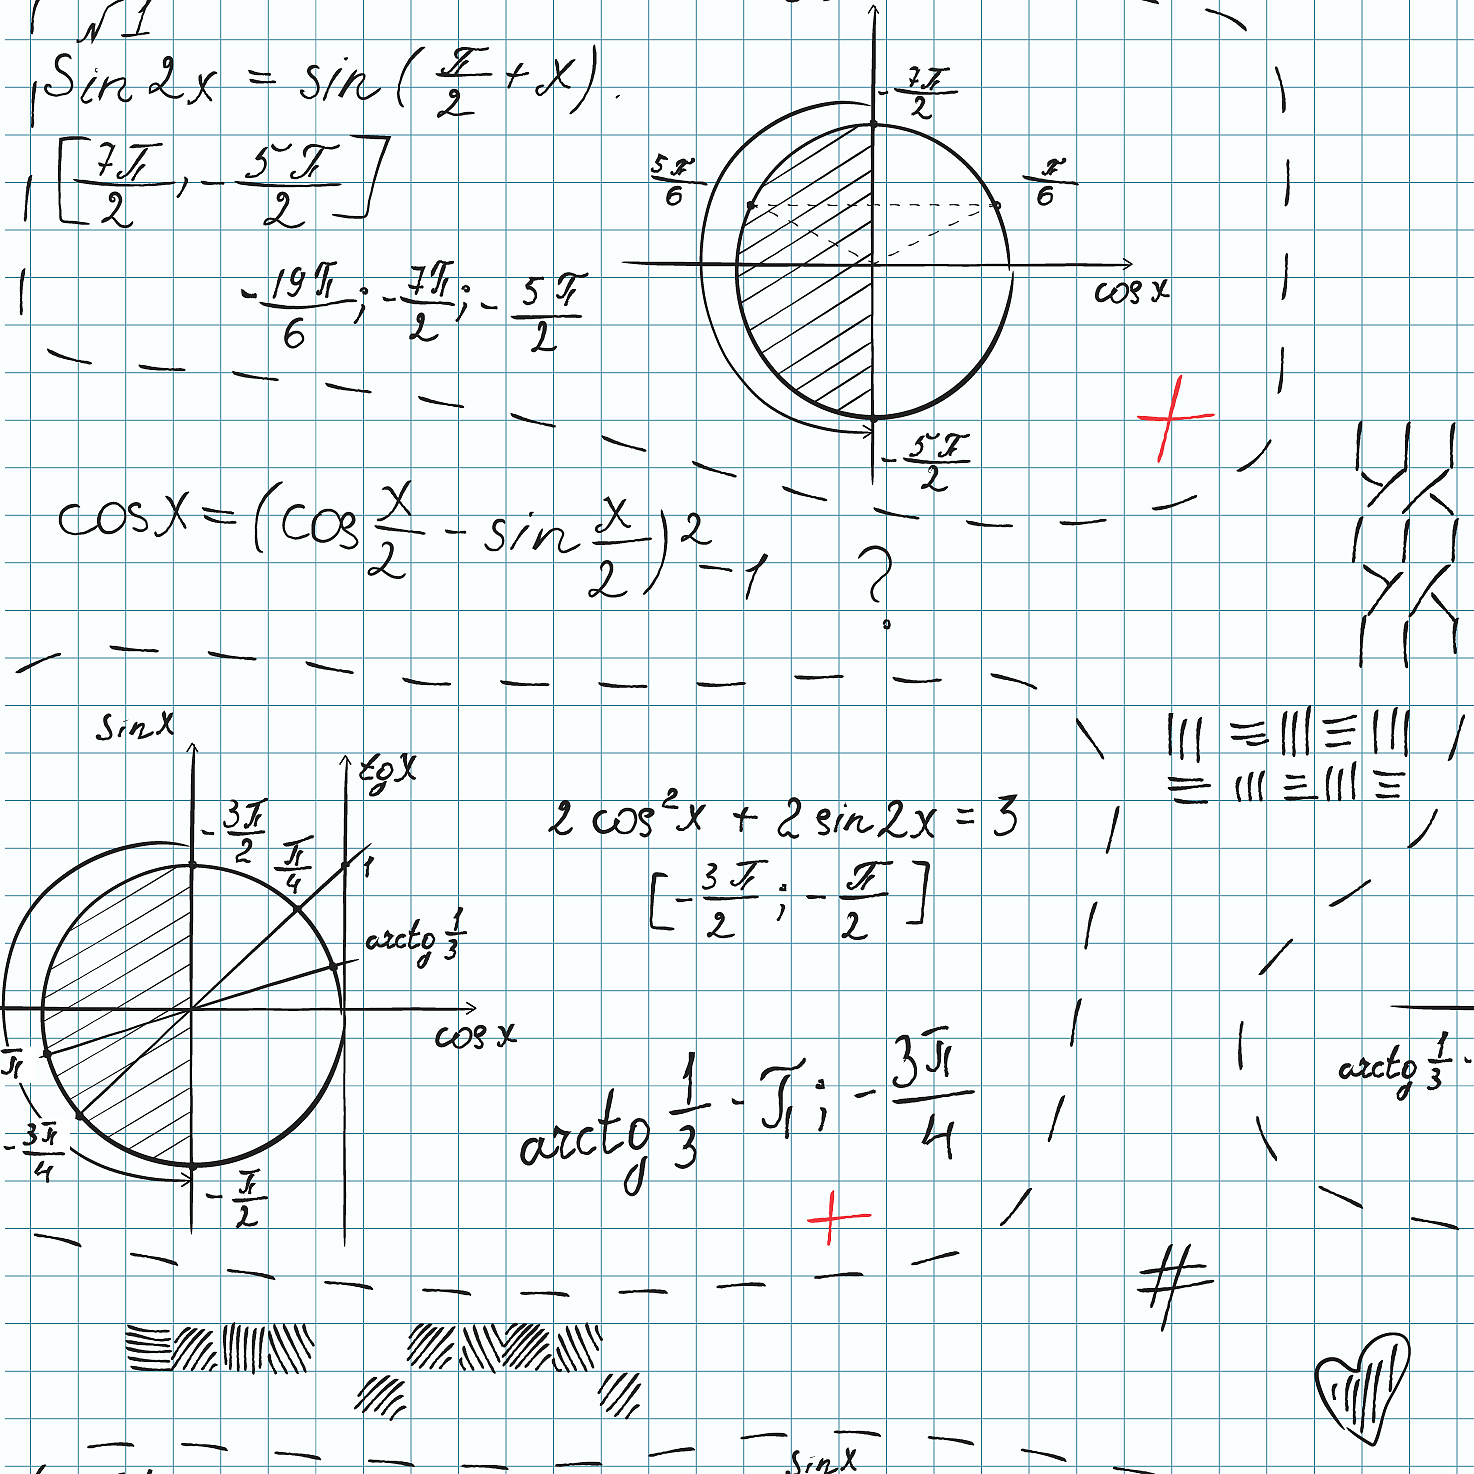 №1
Sin 2x = sin(π/2 + x).
[7π/2, -5π/2]
-19π/6; -7π/2; -5π/2
-7π/2
5π/6
π/6
cos x
-5π/2
cos x = (cos x/2 - sin x/2)² - 1 ?
sin x
tg x
-3π/2
π/4
1
arctg 1/3
cos x
π
-3π/4
-π/2
2 cos²x + 2 sin 2x = 3
[-3π/2; -π/2]
arctg 1/3 - π; -3π/4
arctg 1/3 -
#
sin x